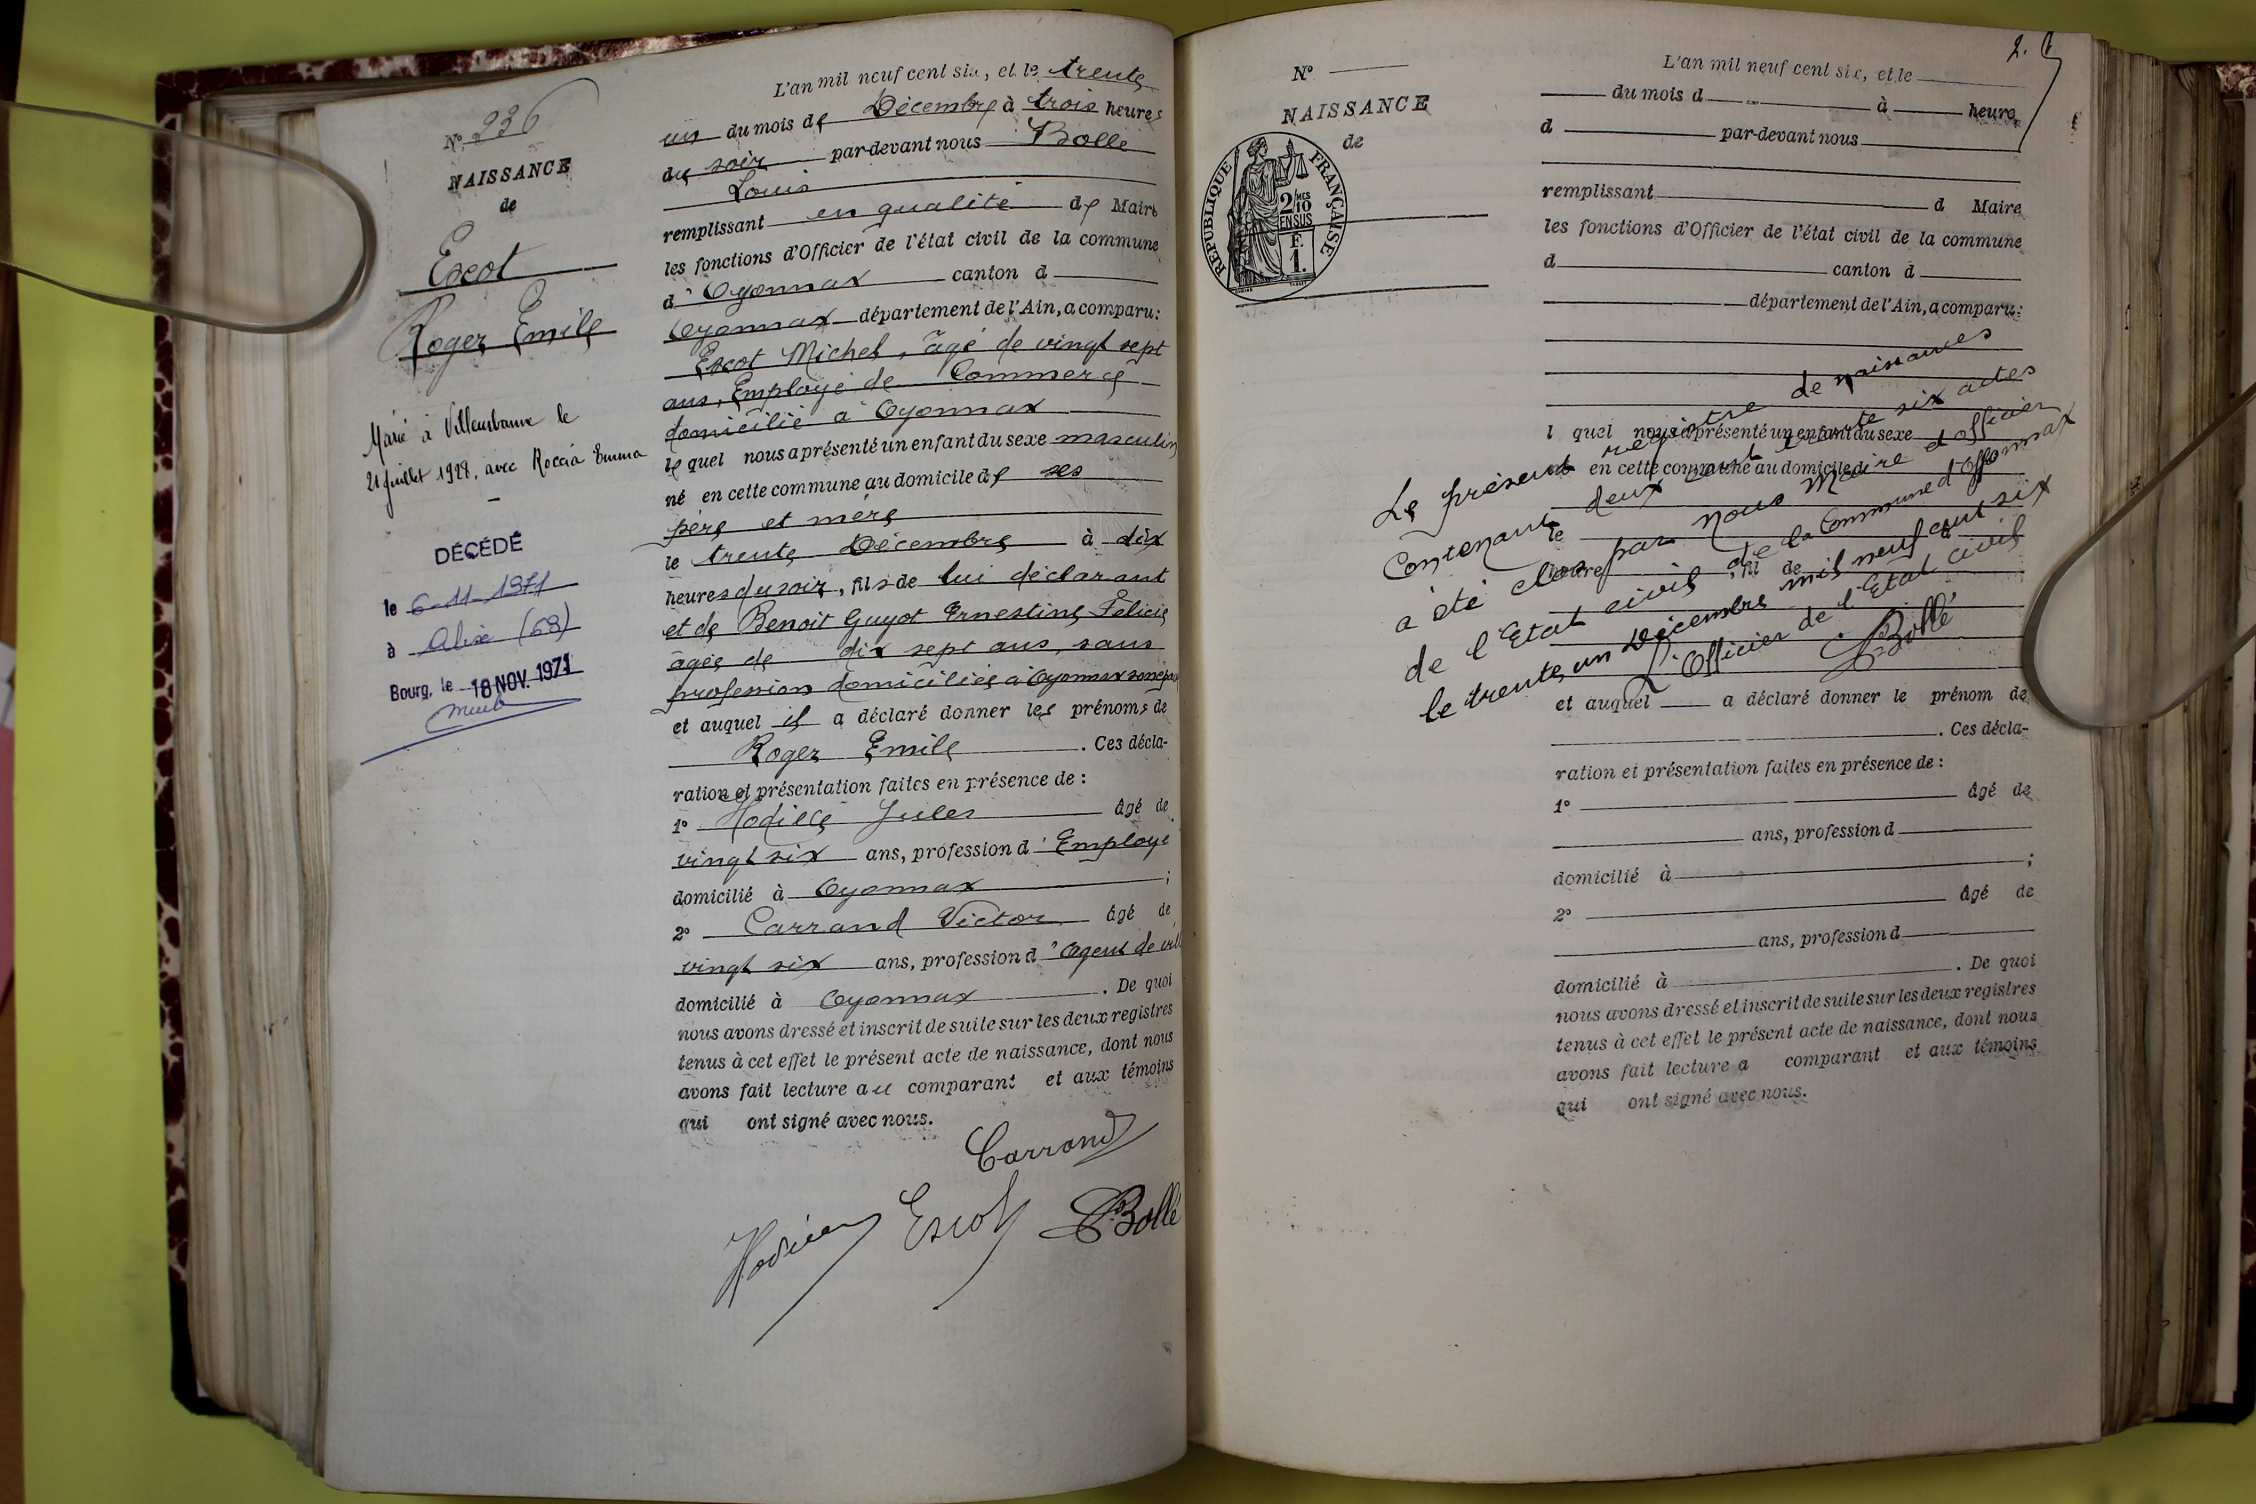 N° 236
NAISSANCE
de
Escot
Roger Emile
Marié à Villeurbanne le
21 juillet 1928, avec Roccia Emma
DÉCÉDÉ
le 6-11-1971
à Alix (69)
Bourg, le 18 NOV. 1971
L'an mil neuf cent six, et le trente
un du mois de Décembre à trois heures
du soir par-devant nous Bollé
Louis
remplissant en qualité de Maire
les fonctions d'Officier de l'état civil de la commune
d'Oyonnax canton d
Oyonnax département de l'Ain, a comparu:
Escot Michel, âgé de vingt sept
ans, Employé de Commerce
domicilié à Oyonnax
le quel nous a présenté un enfant du sexe masculin
né en cette commune au domicile de ses
père et mère
le trente Décembre à dix
heures du soir, fils de lui déclarant
et de Benoit Guyot Ernestine Félicie
âgée de dix sept ans, sans
profession domiciliée à Oyonnax
et auquel il a déclaré donner les prénoms de
Roger Emile. Ces décla-
ration et présentation faites en présence de :
1° Jules âgé de
vingt six ans, profession d'Employé
domicilié à Oyonnax ;
2° Carrand Victor âgé de
vingt six ans, profession d'agent de vill
domicilié à Oyonnax. De quoi
nous avons dressé et inscrit de suite sur les deux registres
tenus à cet effet le présent acte de naissance, dont nous
avons fait lecture au comparant et aux témoins
qui ont signé avec nous.
Carrand
Escot
Bollé
N°
NAISSANCE
de
RÉPUBLIQUE FRANÇAISE
2/10 MES
EN SUS
F.
1.
L'an mil neuf cent six, et le
du mois d à heure
d par-devant nous
remplissant d Maire
les fonctions d'Officier de l'état civil de la commune
d canton d
département de l'Ain, a comparu:
l quel nous a présenté un enfant du sexe
né en cette commune au domicile d
le à
heure , fil de
Le présent registre de naissances
Contenant deux cent trente six actes
a été clos par nous Maire et officier
de l'Etat civil de la Commune d'Oyonnax
le trente un Décembre mil neuf cent six
L'Officier de l'Etat civil
Bollé
et auquel a déclaré donner le prénom de
. Ces décla-
ration et présentation faites en présence de :
1° âgé de
ans, profession d
domicilié à ;
2° âgé de
ans, profession d
domicilié à . De quoi
nous avons dressé et inscrit de suite sur les deux registres
tenus à cet effet le présent acte de naissance, dont nous
avons fait lecture a comparant et aux témoins
qui ont signé avec nous.